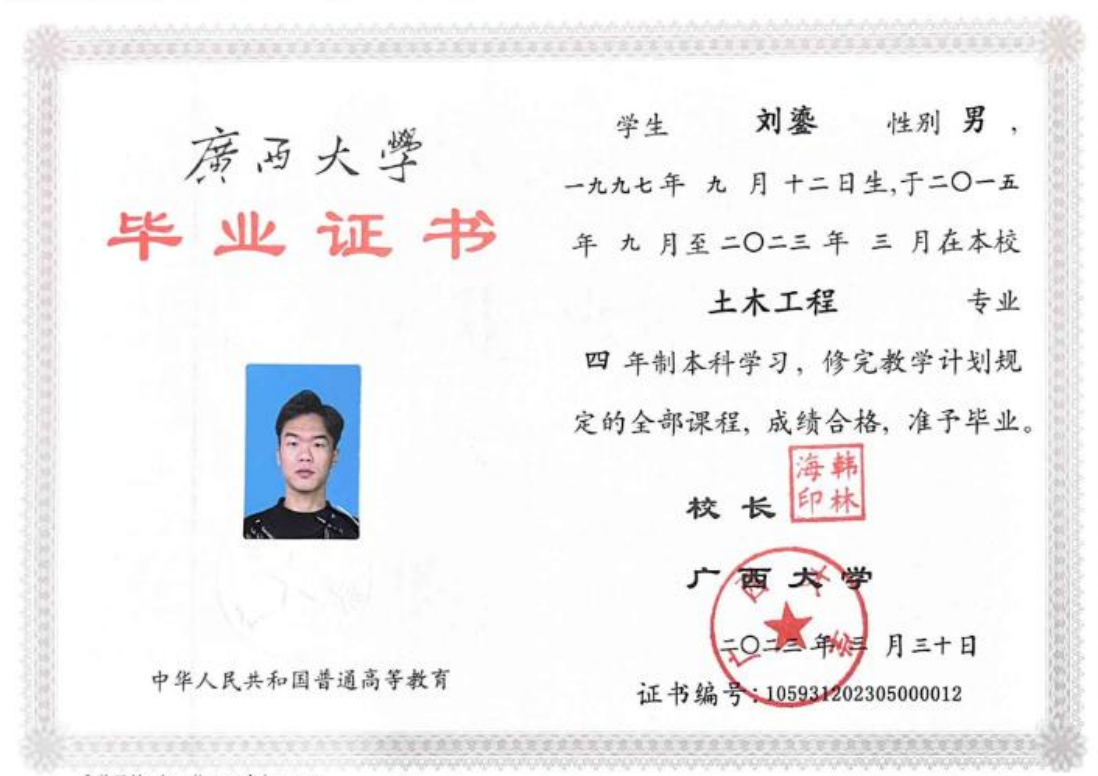 廣西大學
毕业证书
中华人民共和国普通高等教育
学生 刘鎏 性别 男，
一九九七年 九 月 十二日生,于二〇一五
年 九 月至二〇二三 年 三 月在本校
土木工程 专业
四 年制本科学习，修完教学计划规
定的全部课程，成绩合格，准予毕业。
校长
韩林
海印
广西大学
广西大学
二〇二三年三 月三十日
证书编号:105931202305000012